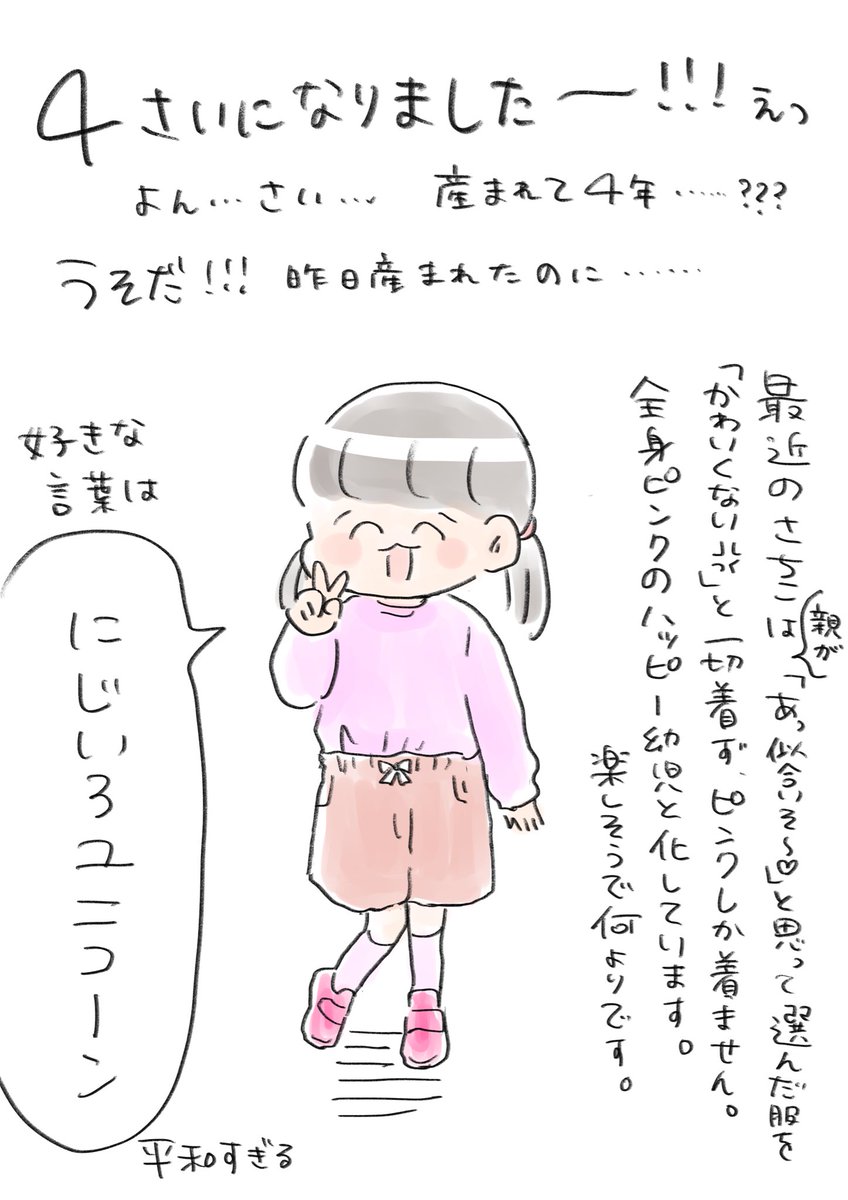 4さいになりましたー!!!えっ
よん…さい… 産まれて4年……???
うそだ!!! 昨日産まれたのに……
最近のさちこは「あっ似合いそ〜♡」と思って選んだ服を
親が
「かわいくない」と一切着ず、ピンクしか着ません。
全身ピンクのハッピー幼児と化しています。
楽しそうで何よりです。
好きな
言葉は
にじいろユニコーン
平和すぎる